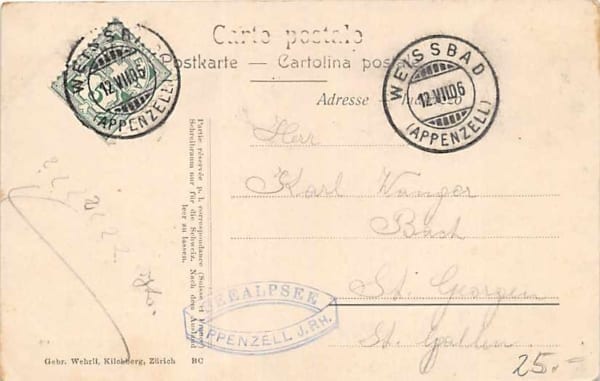 Carte postale
Postkarte — Cartolina postale
Adresse
WEISSBAD
12.VII.06
(APPENZELL)
WEISSBAD
12.VII.06
(APPENZELL)
5
Partie réservée p. l. correspondance (Suisse et France)
Schreibraum nur für die Schweiz. Nach dem Ausland
leer zu lassen.
Herr
Karl Wanger
Bach
St. Georgen
St. Gallen
SEEALPSEE
APPENZELL J. RH.
Gebr. Wehrli, Kilchberg, Zürich RC
25.-